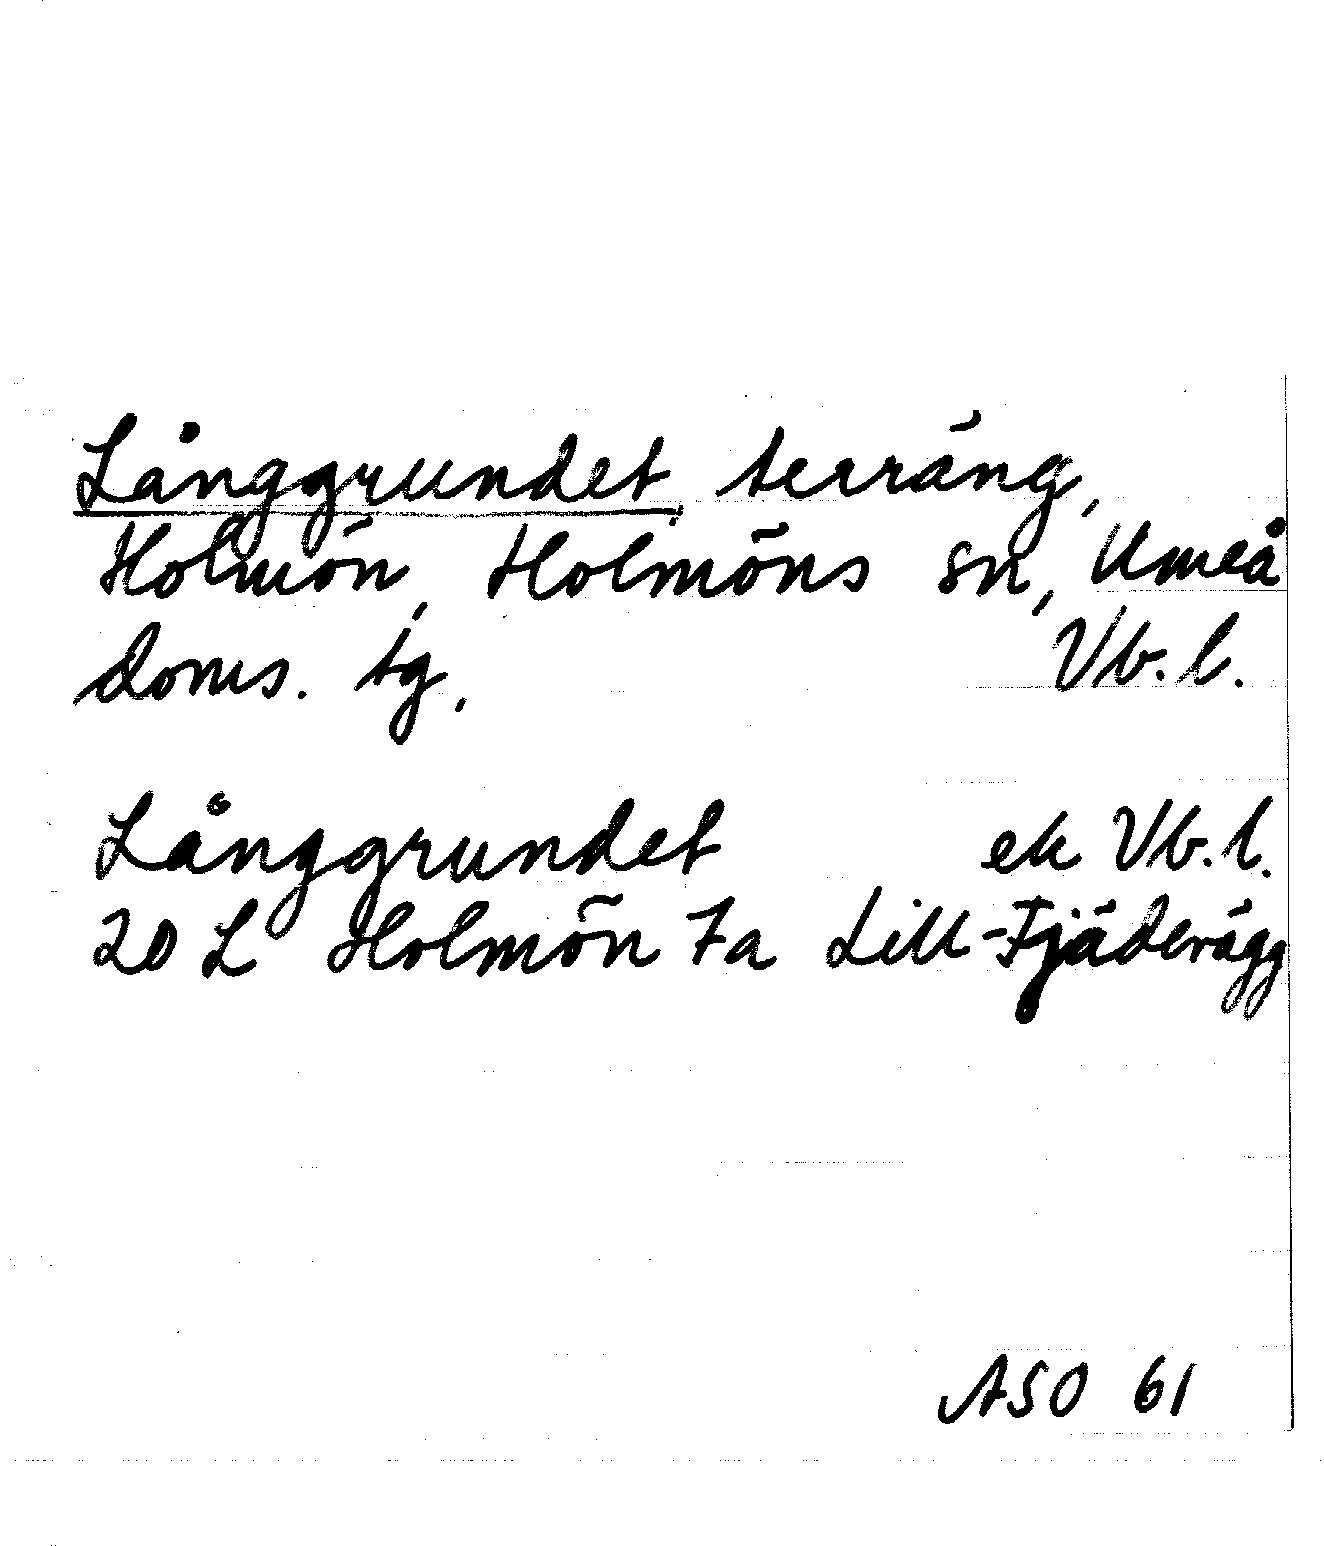 Långgrundet, terräng,
Holmön, Holmöns sn, Umeå
doms. tg. Vb. l.
Långgrundet ek Vb. l.
20 L Holmön 7a Lill-Fjäderägg
ASO 61